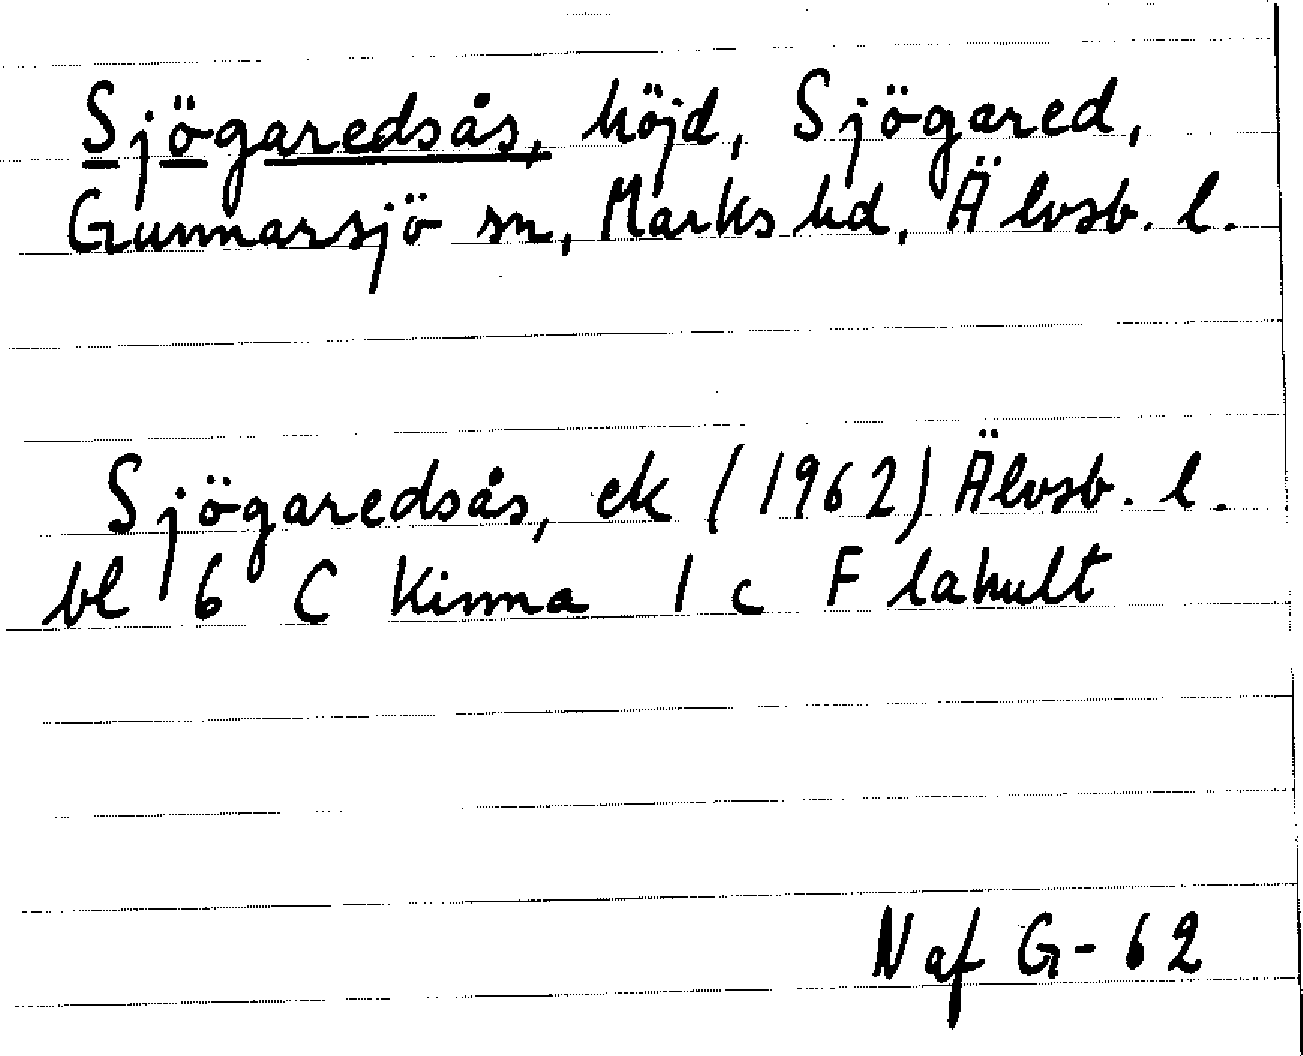 Sjögaredsås, höjd, Sjögared,
Gunnarsjö sn, Marks hd, Älvsb. l.
Sjögaredsås, ek (1962) Älvsb. l.
bl 6 C Kinna 1 c Flahult
N af G-62